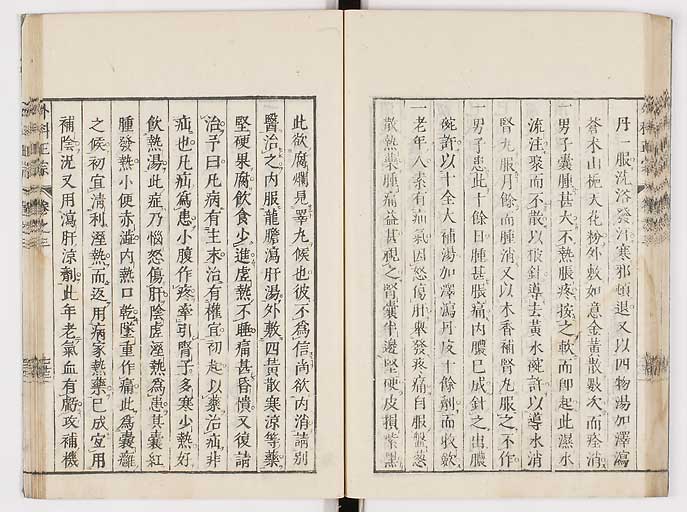 丹一服洗浴發汗寒邪頓退又以四物湯加澤瀉
蒼木山梔天花粉外敷如意金黃散數次而痊消
一男子囊腫甚大不熱脹疼按之軟而即起此濕水
流注聚而不散以披針導去黃水碗許以導水消
腎丸服月餘而腫消又以木香補腎丸服之不作
一男子患此十餘日腫甚脹痛內膿已成針之出膿
碗許以十全大補湯加澤瀉丹皮十餘劑而收斂
一老年人素有疝氣因怒傷肝舉發疼痛自服盤葱
散熱藥腫痛益甚視之腎囊半邊堅硬皮損紫黑
此欲腐爛見睪丸候也彼不為信尚欲內消請別
醫治之內服龍膽瀉肝湯外敷四黃散寒涼等藥
堅硬果腐飲食少進虛熱不睡痛甚昏憒又復請
治予曰凡病有主末治有權宜初起以藥治疝非
疝也凡疝為患小腹作疼牽引腎子多寒少熱好
飲熱湯此症乃惱怒傷肝陰虛溼熱為患其囊紅
腫發熱小便赤澁內熱口乾墜重作痛此為囊癰
之候初宜清利溼熱而返用病家熱藥已成宜用
補陰泥又用瀉肝涼劑此年老氣血有虧攻補機
外科正宗
卷之三